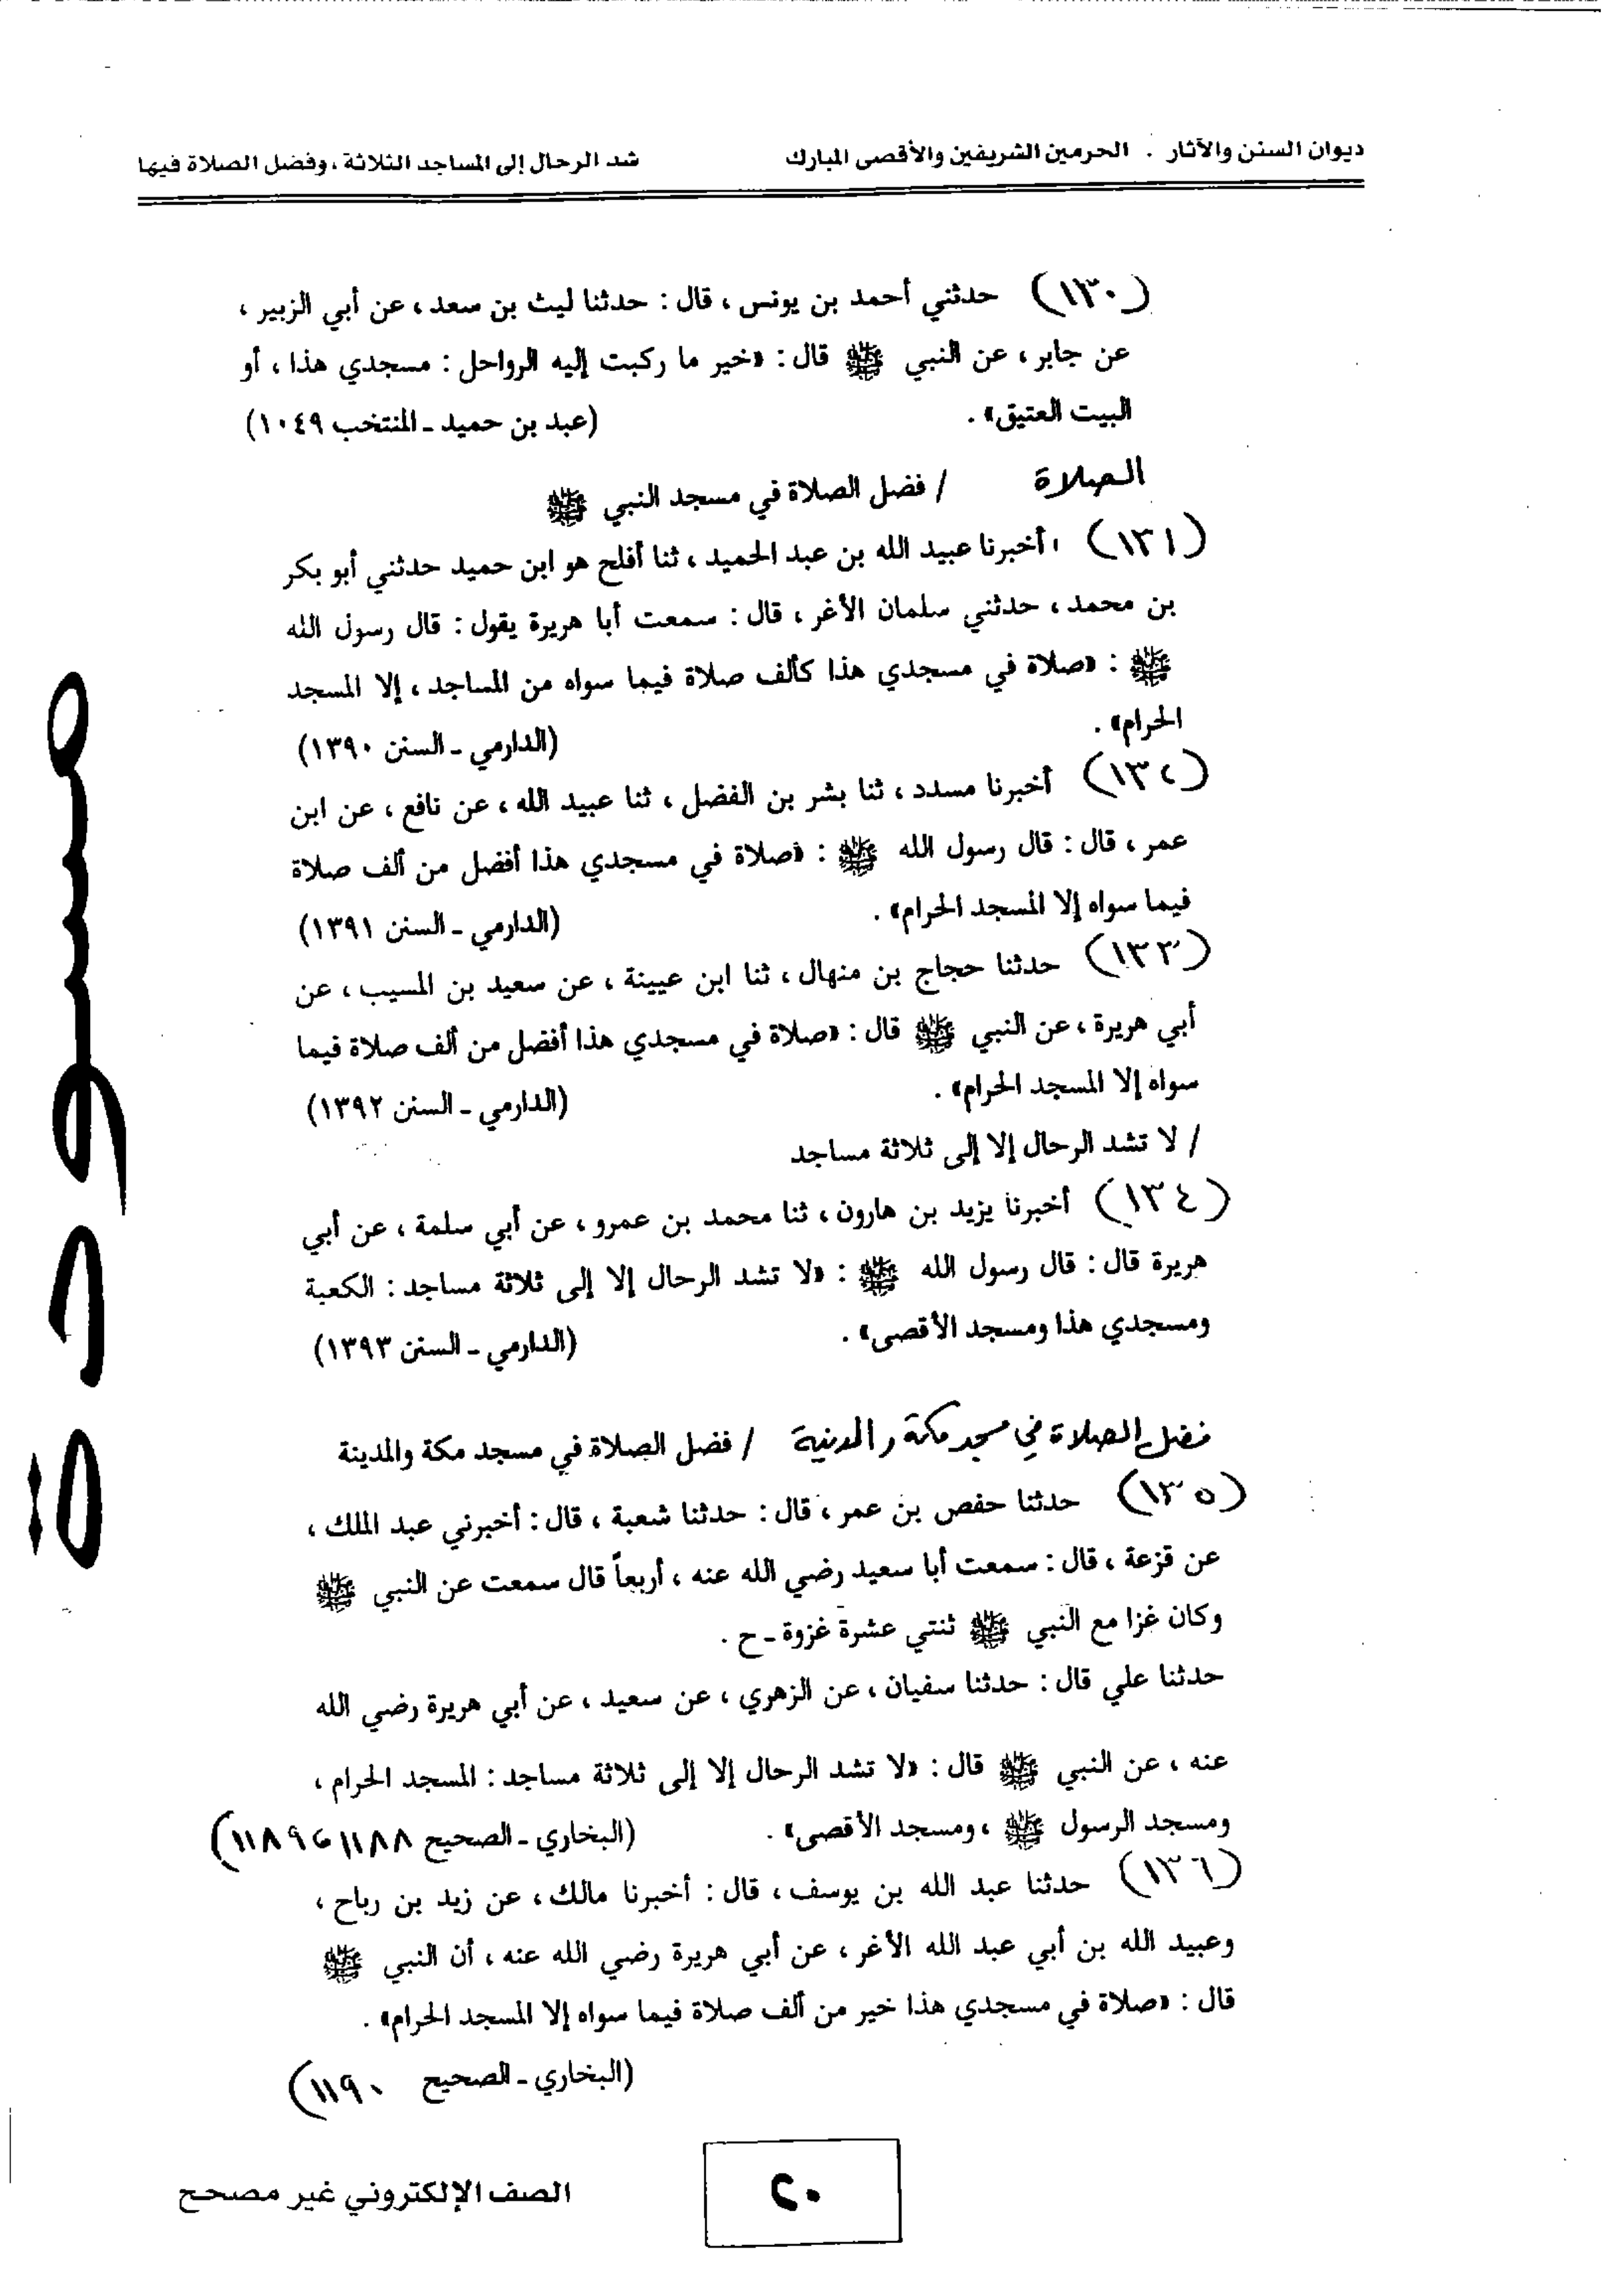 ديوان السنن والآثار . الحرمين الشريفين والأقصى المبارك
شد الرحال إلى المساجد الثلاثة ، وفضل الصلاة فيها
(١٣٠) حدثني أحمد بن يونس ، قال : حدثنا ليث بن سعد ، عن أبي الزبير ،
عن جابر ، عن النبي ﷺ قال : «خير ما ركبت إليه الرواحل : مسجدي هذا ، أو
البيت العتيق» . (عبد بن حميد ـ المنتخب ١٠٤٩)
الصلاة / فضل الصلاة في مسجد النبي ﷺ
(١٣١) أخبرنا عبيد الله بن عبد الحميد ، ثنا أفلح هو ابن حميد حدثني أبو بكر
بن محمد ، حدثني سلمان الأغر ، قال : سمعت أبا هريرة يقول : قال رسول الله
ﷺ : «صلاة في مسجدي هذا كألف صلاة فيما سواه من المساجد ، إلا المسجد
الحرام» . (الدارمي ـ السنن ١٣٩٠)
(١٣٢) أخبرنا مسدد ، ثنا بشر بن الفضل ، ثنا عبيد الله ، عن نافع ، عن ابن
عمر ، قال : قال رسول الله ﷺ : «صلاة في مسجدي هذا أفضل من ألف صلاة
فيما سواه إلا المسجد الحرام» . (الدارمي ـ السنن ١٣٩١)
(١٣٣) حدثنا حجاج بن منهال ، ثنا ابن عيينة ، عن سعيد بن المسيب ، عن
أبي هريرة ، عن النبي ﷺ قال : «صلاة في مسجدي هذا أفضل من ألف صلاة فيما
سواه إلا المسجد الحرام» . (الدارمي ـ السنن ١٣٩٢)
/ لا تشد الرحال إلا إلى ثلاثة مساجد
(١٣٤) أخبرنا يزيد بن هارون ، ثنا محمد بن عمرو ، عن أبي سلمة ، عن أبي
هريرة قال : قال رسول الله ﷺ : «لا تشد الرحال إلا إلى ثلاثة مساجد : الكعبة
ومسجدي هذا ومسجد الأقصى» . (الدارمي ـ السنن ١٣٩٣)
فضل الصلاة في مسجد مكة والمدينة / فضل الصلاة في مسجد مكة والمدينة
(١٣٥) حدثنا حفص بن عمر ، قال : حدثنا شعبة ، قال : أخبرني عبد الملك ،
عن قزعة ، قال : سمعت أبا سعيد رضي الله عنه ، أربعاً قال سمعت عن النبي ﷺ
وكان غزا مع النبي ﷺ ثنتي عشرة غزوة ـ ح .
حدثنا علي قال : حدثنا سفيان ، عن الزهري ، عن سعيد ، عن أبي هريرة رضي الله
عنه ، عن النبي ﷺ قال : «لا تشد الرحال إلا إلى ثلاثة مساجد : المسجد الحرام ،
ومسجد الرسول ﷺ ، ومسجد الأقصى» . (البخاري ـ الصحيح ١١٨٨ ، ١١٨٩)
(١٣٦) حدثنا عبد الله بن يوسف ، قال : أخبرنا مالك ، عن زيد بن رباح ،
وعبيد الله بن أبي عبد الله الأغر ، عن أبي هريرة رضي الله عنه ، أن النبي ﷺ
قال : «صلاة في مسجدي هذا خير من ألف صلاة فيما سواه إلا المسجد الحرام» .
(البخاري ـ الصحيح ١١٩٠)
٢٠
الصف الإلكتروني غير مصحح
مسودة